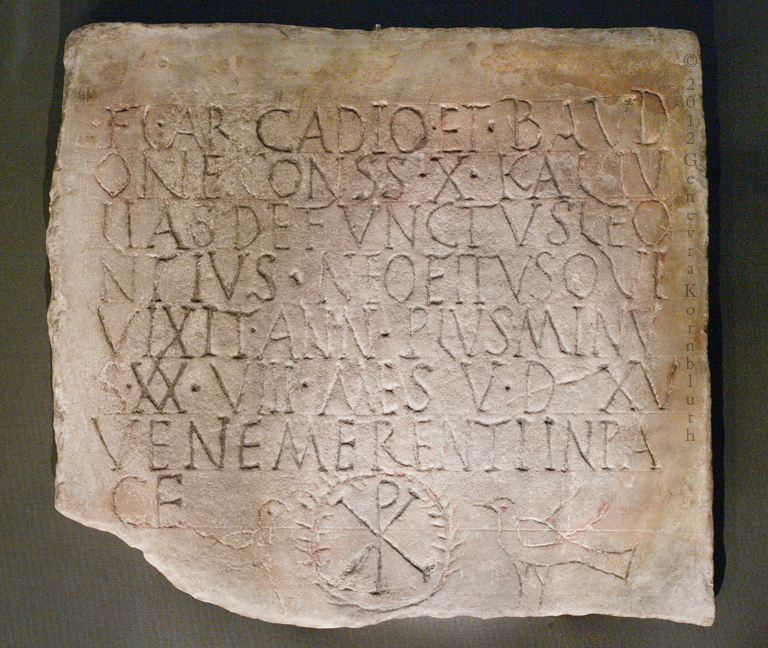 FL·ARCADIO·ET·BAUD
ONE CONSS·X·KALIU
LIAS DEFUNCTUS LEO
NTIUS·NEOFITUS QUI
VIXIT·ANN·PLUS MINU
S·XX·VIII·MES V·D XV
VENEMERENTI IN PA
CE
© 2012 Genevra Kornbluth